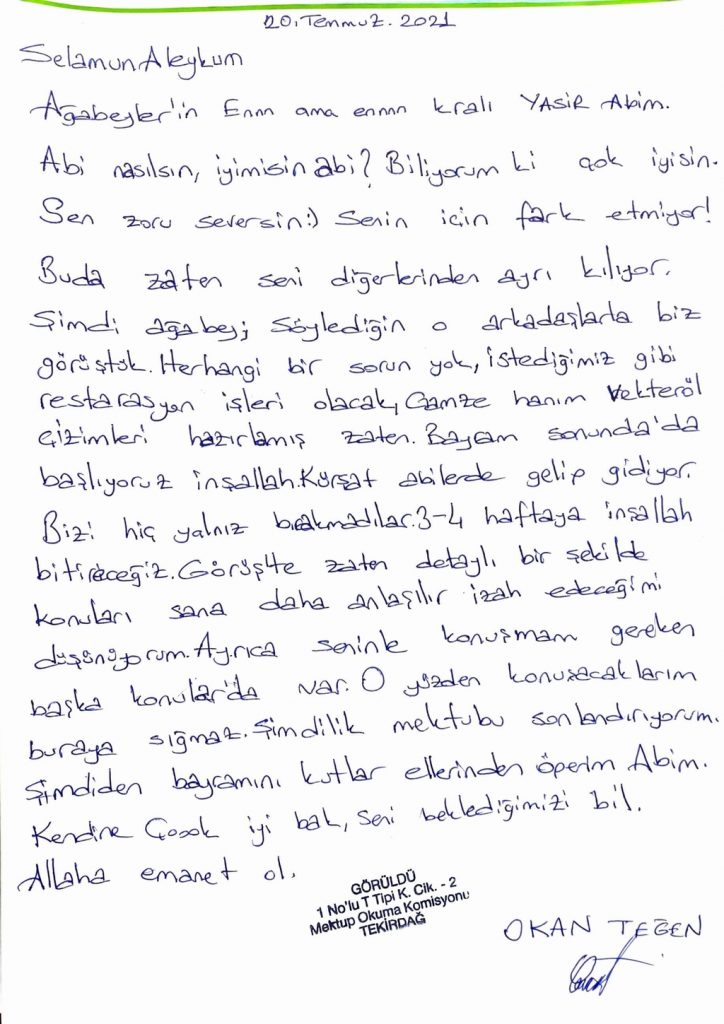 20.Temmuz.2021
SelamunAleykum
Ağabeyler'in Ennn ama ennnn kralı YASİR Abim.
Abi nasılsın, iyimisin abi? Biliyorum ki çok iyisin.
Sen zoru seversin:) Senin için fark etmiyor!
Buda zaten seni diğerlerinden ayrı kılıyor.
Şimdi ağabey; söylediğin o arkadaşlarla biz
görüştük. Herhangi bir sorun yok, istediğimiz gibi
restarasyon işleri olacak, Gamze hanım Vekteröl
çizimleri hazırlamış zaten. Bayram sonunda'da
başlıyoruz inşallah. Kürşat abilerde gelip gidiyor.
Bizi hiç yalnız bırakmadılar. 3-4 haftaya inşallah
bitireceğiz. Görüşte zaten detaylı bir şekilde
konuları sana daha anlaşılır izah edeceğimi
düşünüyorum. Ayrıca seninle konuşmam gereken
başka konular'da var. O yüzden konuşacaklarım
buraya sığmaz. Şimdilik mektubu sonlandırıyorum.
Şimdiden bayramını kutlar ellerinden öperim Abim.
Kendine Çoook iyi bak, seni beklediğimizi bil.
Allaha emanet ol.
GÖRÜLDÜ
1 No'lu T Tipi K. Cik. - 2
Mektup Okuma Komisyonu
TEKİRDAĞ
OKAN TEĞEN